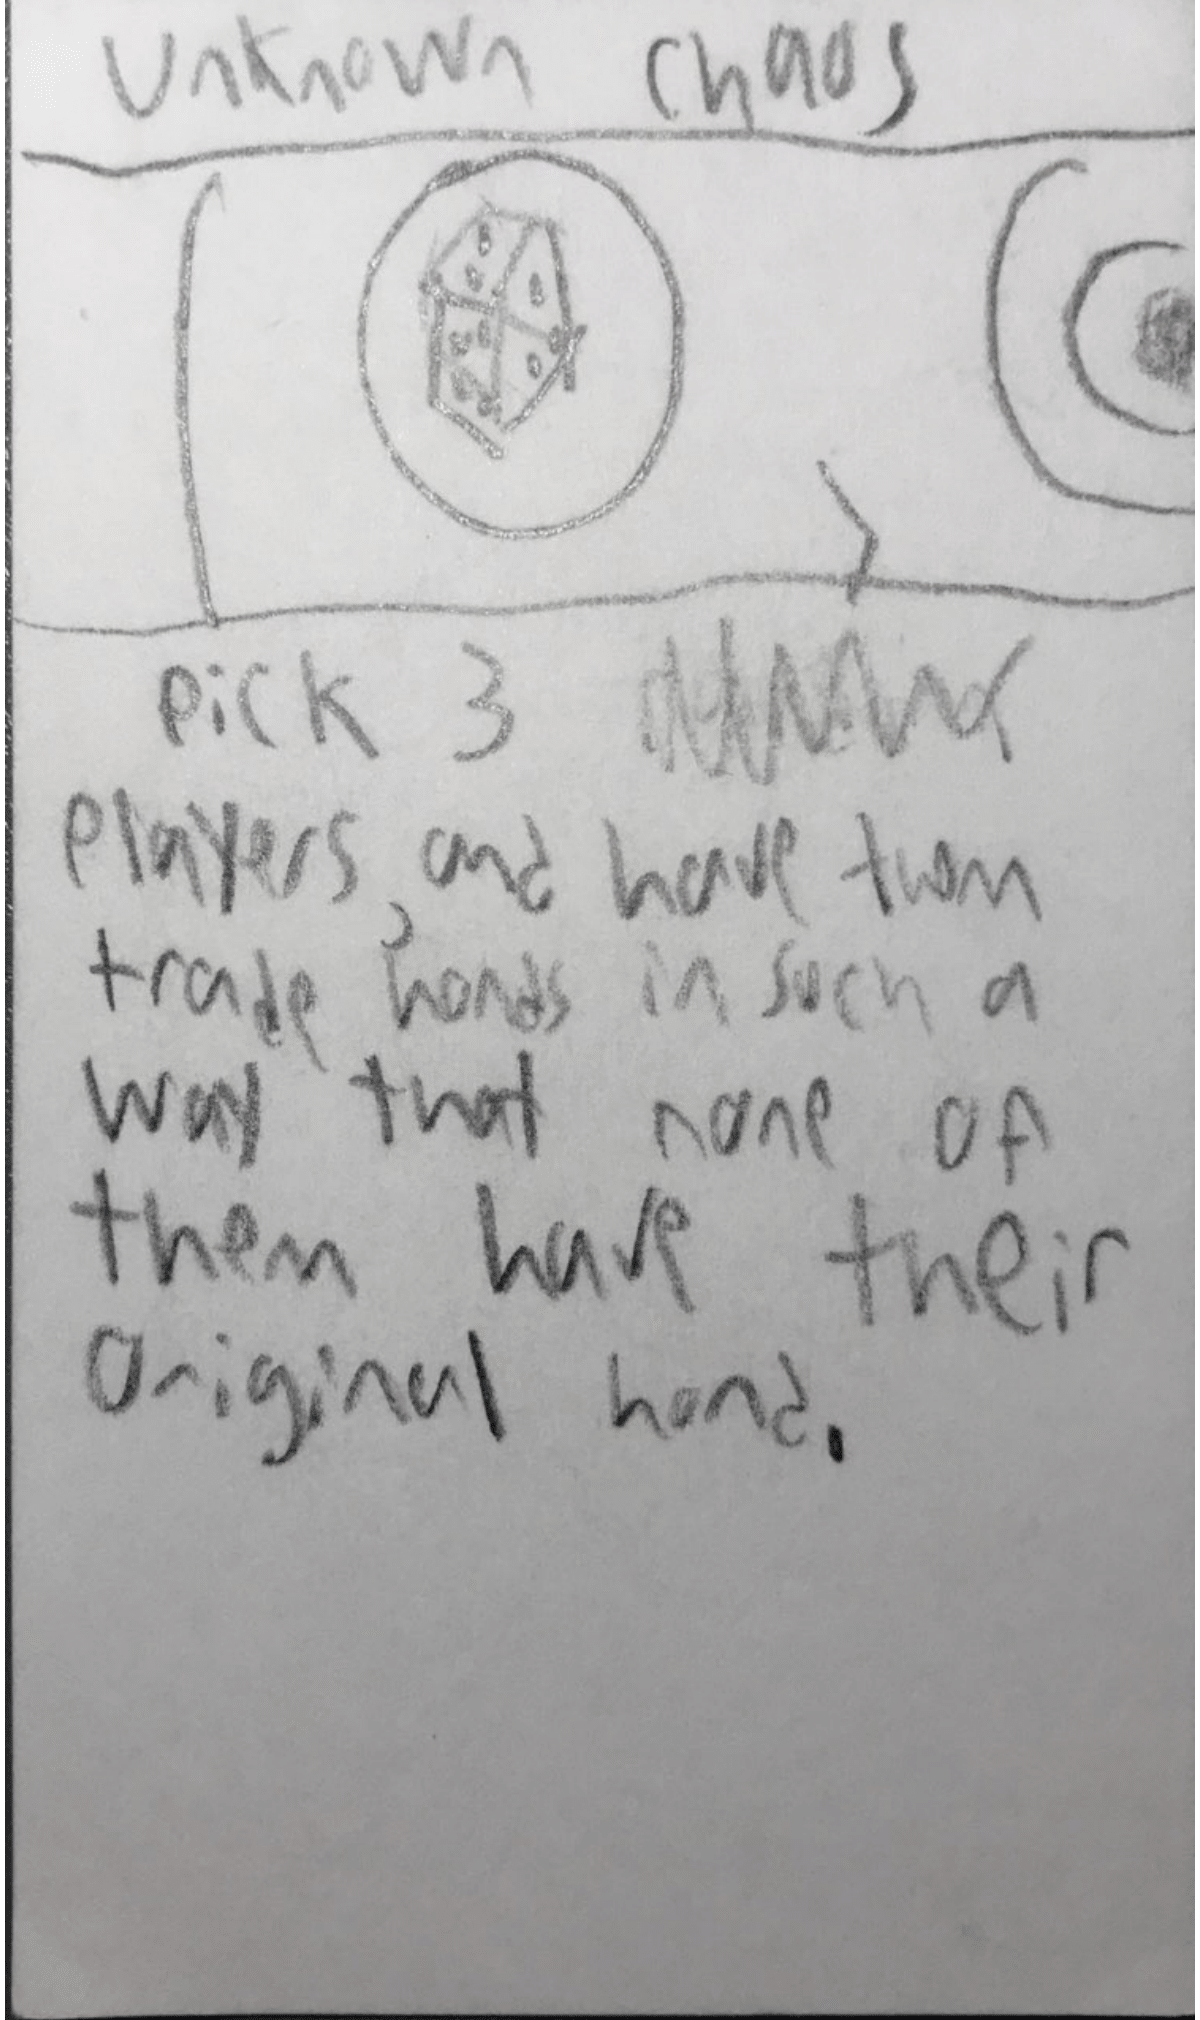 Unknown chaos
Pick 3
Players, and have them
trade hands in such a
way that none of
them have their
Original hand.